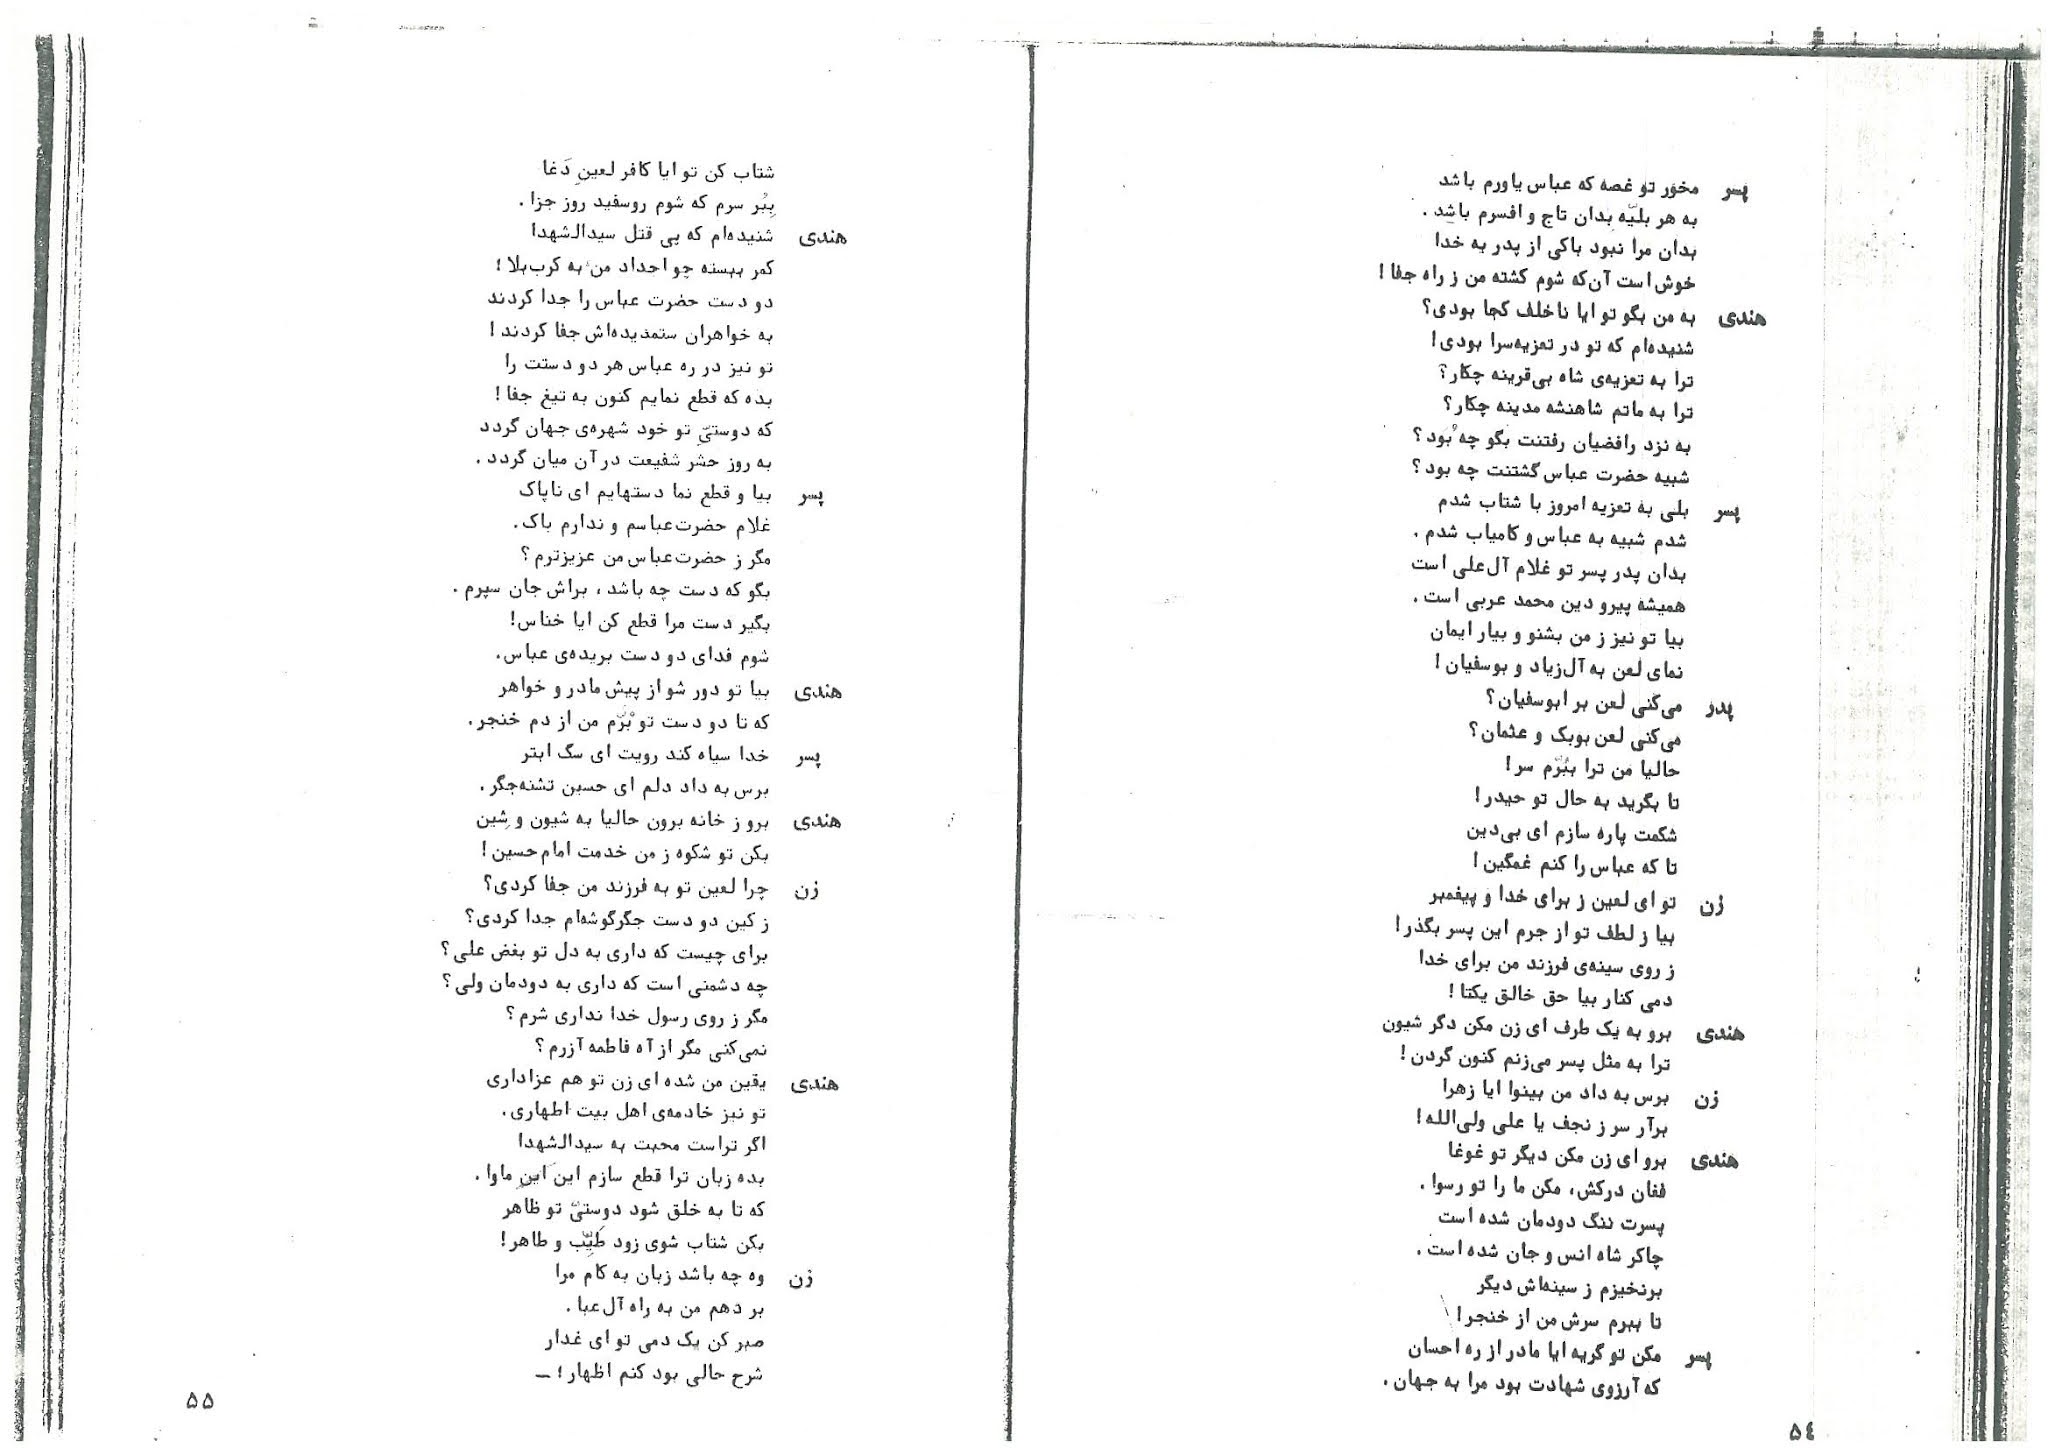 پسر مخور تو غصه که عباس یاورم باشد
به هر بلیّه بدان تاج و افسرم باشد.
بدان مرا نبود باکی از پدر به خدا
خوش‌است آن‌که شوم کشته من ز راه جفا!
هندی به من بگو تو ایا ناخلف کجا بودی؟
شنیده‌ام که تو در تعزیه‌سرا بودی!
ترا به تعزیه‌ی شاه بی‌قرینه چکار؟
ترا به ماتم شاهنشه مدینه چکار؟
به نزد رافضیان رفتنت بگو چه بُود؟
شبیه حضرت عباس گشتنت چه بود؟
پسر بلی به تعزیه امروز با شتاب شدم
شدم شبیه به عباس و کامیاب شدم.
بدان پدر پسر تو غلام آل‌علی است
همیشه پیرو دین محمد عربی است.
بیا تو نیز ز من بشنو و بیار ایمان
نمای لعن به آل‌زیاد و بوسفیان!
پدر می‌کنی لعن بر ابوسفیان؟
می‌کنی لعن بوبک و عثمان؟
حالیا من ترا ببُرّم سر!
تا بگرید به حال تو حیدر!
شکمت پاره سازم ای بی‌دین
تا که عباس را کنم غمگین!
زن تو ای لعین ز برای خدا و پیغمبر
بیا ز لطف تو از جرم این پسر بگذر!
ز روی سینه‌ی فرزند من برای خدا
دمی کنار بیا حق خالق یکتا!
هندی برو به یک طرف ای زن مکن دگر شیون
ترا به مثل پسر می‌زنم کنون گردن!
زن برس به داد من بینوا ایا زهرا
برآر سر ز نجف یا علی ولی‌الله!
هندی برو ای زن مکن دیگر تو غوغا
فغان درکش، مکن ما را تو رسوا.
پسرت ننگ دودمان شده است
چاکر شاه انس و جان شده است.
برنخیزم ز سینه‌اش دیگر
تا ببرم سرش من از خنجر!
پسر مکن تو گریه ایا مادر از ره احسان
که آرزوی شهادت بود مرا به جهان.
۵٤
شتاب کن تو ایا کافر لعینِ دَغا
بِبُر سرم که شوم روسفید روز جزا.
هندی شنیده‌ام که پی قتل سیدالشهدا
کمر ببسته چو اجداد من به کرب‌بلا؛
دو دست حضرت عباس را جدا کردند
به خواهران ستمدیده‌اش جفا کردند!
تو نیز در ره عباس هر دو دستت را
بده که قطع نمایم کنون به تیغ جفا!
که دوستیّ تو خود شهره‌ی جهان گردد
به روز حشر شفیعت در آن میان گردد.
پسر بیا و قطع نما دستهایم ای ناپاک
غلام حضرت‌عباسم و ندارم باک.
مگر ز حضرت‌عباس من عزیزترم؟
بگو که دست چه باشد، براش جان سپرم.
بگیر دست مرا قطع کن ایا خناس!
شوم فدای دو دست بریده‌ی عباس.
هندی بیا تو دور شو از پیش مادر و خواهر
که تا دو دست تو بُرّم من از دم خنجر.
پسر خدا سیاه کند رویت ای سگ ابتر
برس به داد دلم ای حسین تشنه‌جگر.
هندی برو ز خانه برون حالیا به شیون و شِین
بکن تو شکوه ز من خدمت امام‌حسین!
زن چرا لعین تو به فرزند من جفا کردی؟
ز کین دو دست جگرگوشه‌ام جدا کردی؟
برای چیست که داری به دل تو بغض علی؟
چه دشمنی است که داری به دودمان ولی؟
مگر ز روی رسول خدا نداری شرم؟
نمی‌کنی مگر از آه فاطمه آزرم؟
هندی یقین من شده ای زن تو هم عزاداری
تو نیز خادمه‌ی اهل بیت اطهاری.
اگر تراست محبت به سیدالشهدا
بده زبان ترا قطع سازم این این ماوا.
که تا به خلق شود دوستیّ تو ظاهر
بکن شتاب شوی زود طَیِّب و طاهر!
زن وه چه باشد زبان به کام مرا
بر دهم من به راه آل‌عبا.
صبر کن یک دمی تو ای غدار
شرح حالی بود کنم اظهار؛ ــ
۵۵